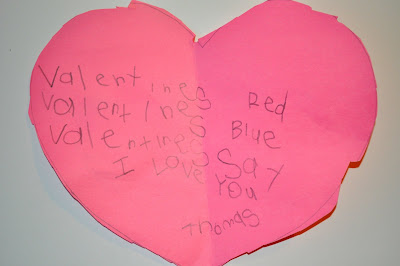 Valentines
Valentines
Valentines
Red
Blue
Say
I LOVe
YOU
thomas